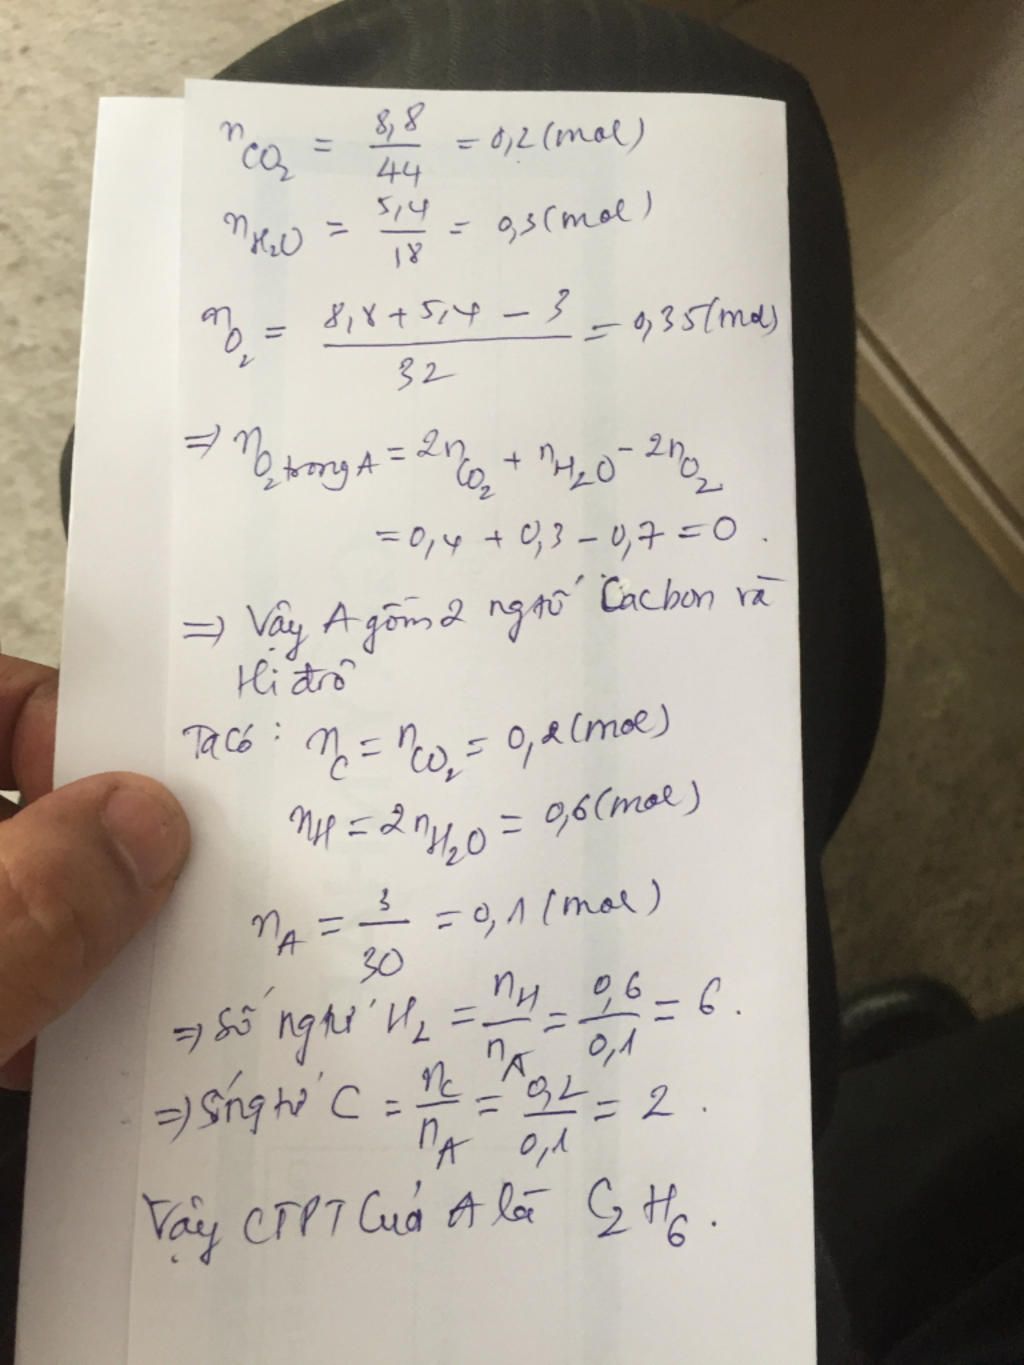 nCO₂ = 8,8/44 = 0,2 (mol)
nH₂O = 5,4/18 = 0,3 (mol)
nO₂ = (8,8 + 5,4 - 3)/32 = 0,35 (mol)
⇒ nO₂ trong A = 2nCO₂ + nH₂O - 2nO₂
= 0,4 + 0,3 - 0,7 = 0 .
⇒ Vậy A gồm 2 ngtố Cacbon và
Hiđrô
Ta có : nC = nCO₂ = 0,2 (mol)
nH = 2nH₂O = 0,6 (mol)
nA = 3/30 = 0,1 (mol)
⇒ Số ngtử H₂ = nH/nA = 0,6/0,1 = 6 .
⇒ Số ngtử C = nC/nA = 0,2/0,1 = 2 .
Vậy CTPT Của A là C₂H₆ .